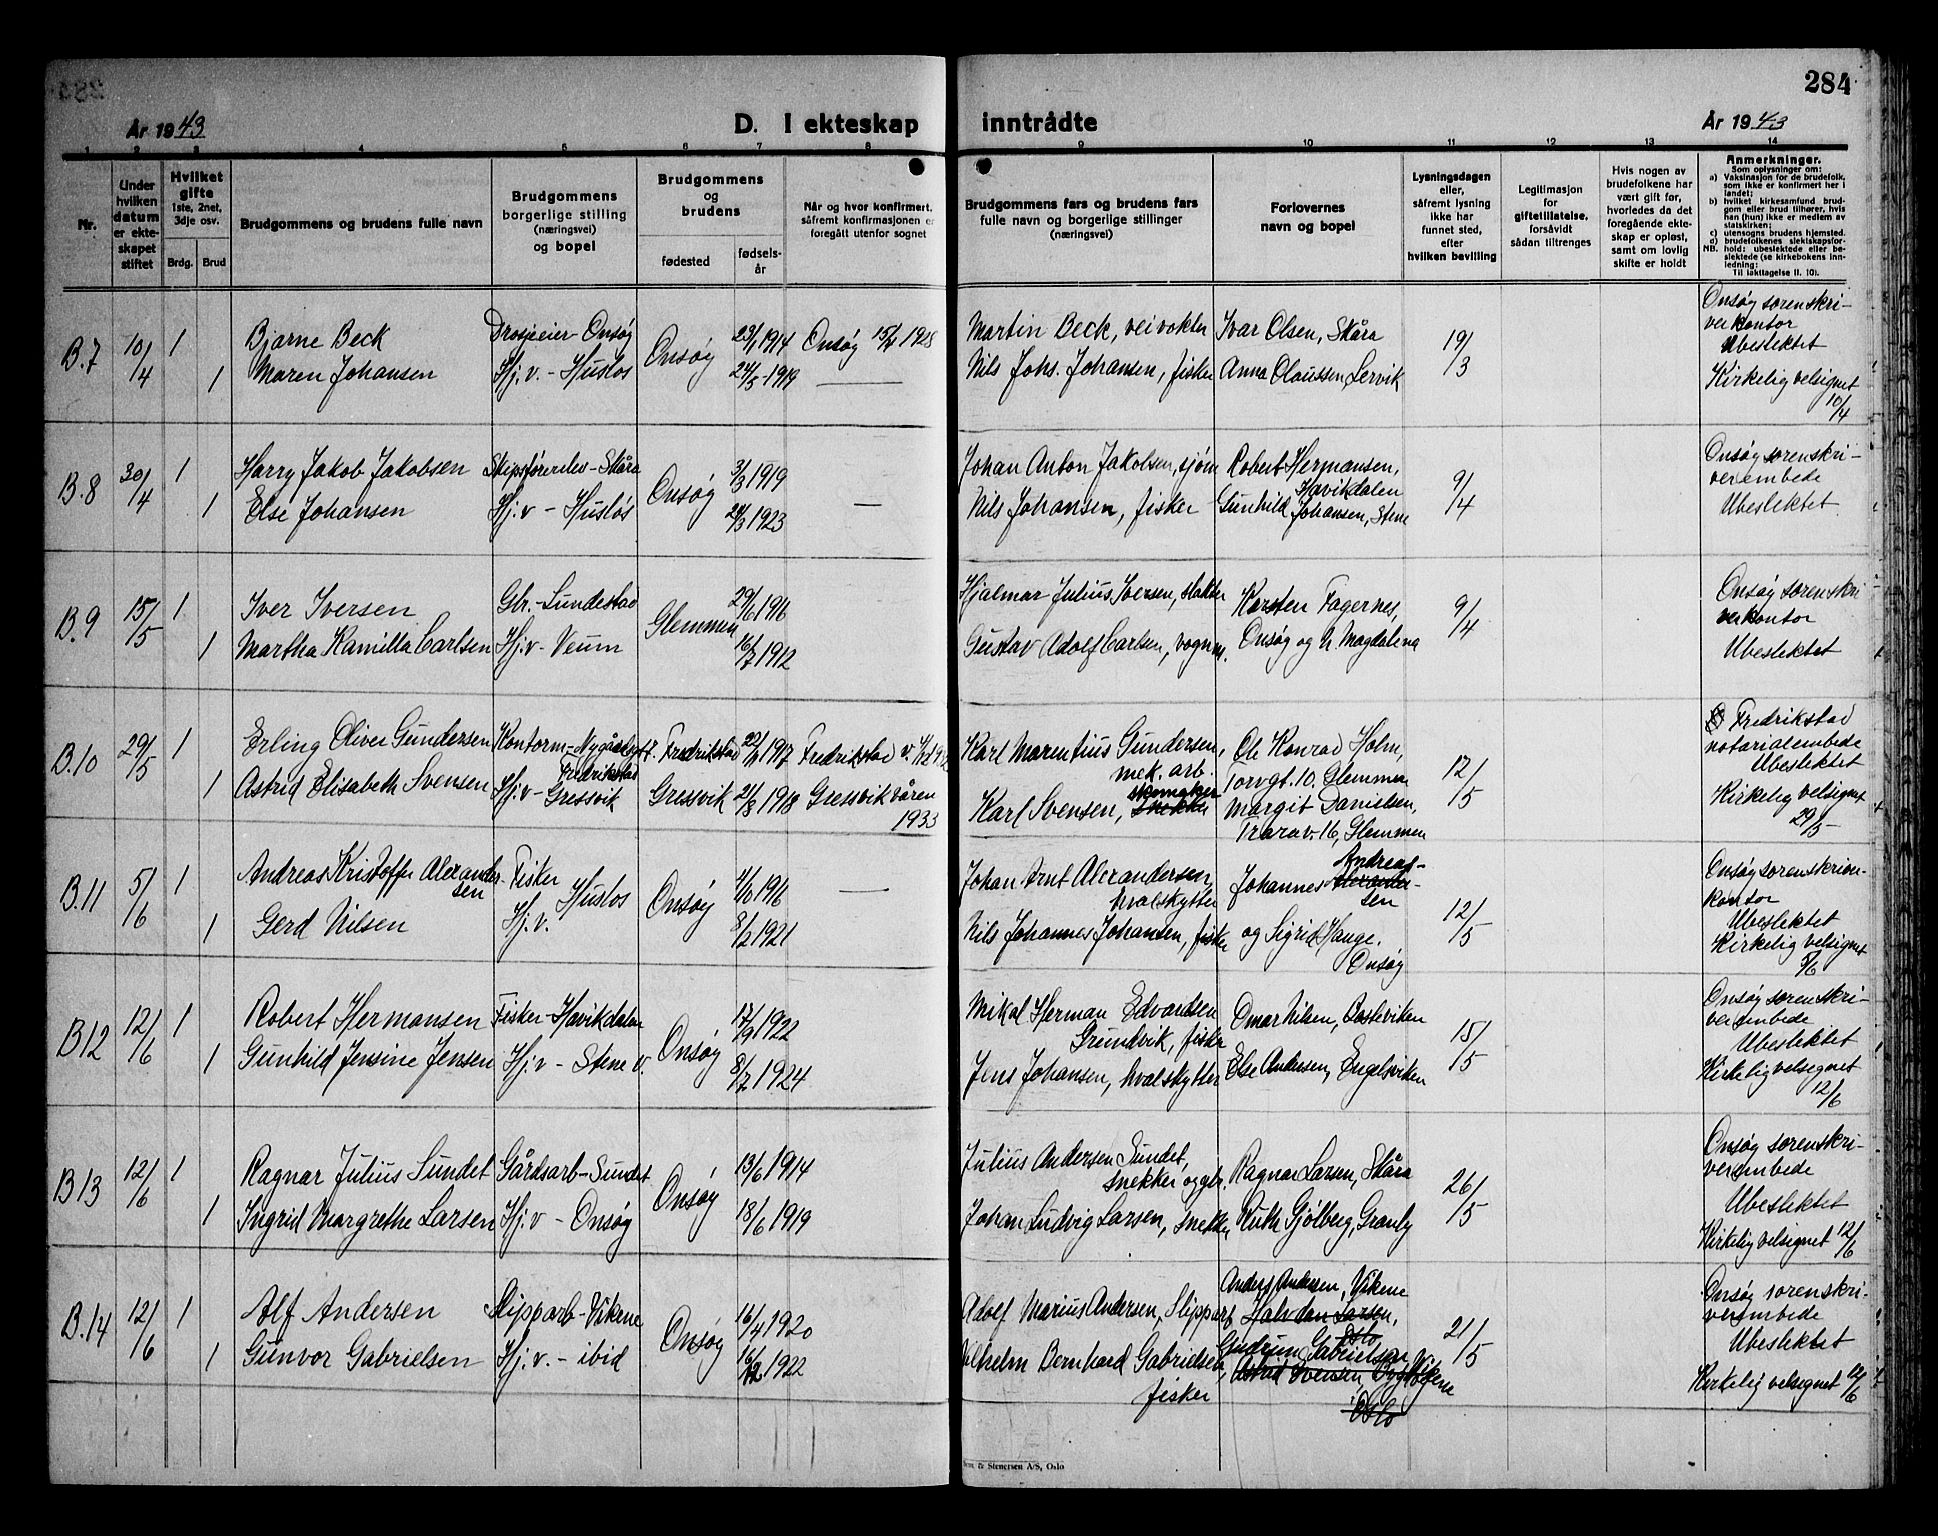 284
År 1943
D. I ekteskap
inntrådte
År 1943
1 2 3 4 5 6 7 8 9 10 11 12 13 14
Nr.
Under hvilken datum er ekteskapet stiftet
Hvilket gifte 1ste, 2net, 3dje osv.
Brdg.
Brud
Brudgommens og brudens fulle navn
Brudgommens borgerlige stilling (næringsvei) og bopel
Brudgommens og brudens
fødested
fødselsår
Når og hvor konfirmert, såfremt konfirmasjonen er foregått utenfor sognet
Brudgommens fars og brudens fars fulle navn og borgerlige stillinger (næringsvei)
Forlovernes navn og bopel
Lysningsdagen eller, såfremt lysning ikke har funnet sted, efter hvilken bevilling
Legitimasjon for giftetillatelse, forsåvidt sådan tiltrenges
Hvis nogen av brudefolkene har vært gift før, hvorledes da det foregående ekteskap er opløst, samt om lovlig skifte er holdt
Anmerkninger.
Som oplysninger om:
a) Vaksinasjon for de brudefolk, som ikke er konfirmert her i landet;
b) hvilket kirkesamfund brudgom eller brud tilhører, hvis han (hun) ikke er medlem av statskirken;
c) utensogns brudens hjemsted.
d) brudefolkenes slektskapsforhold: ubeslektede eller beslektede (se kirkebokens innledning;
NB.
Til iakttagelse II. 10).
B.7 10/4 1 Bjarne Beck Drosjeeier - Onsøy Onsøy 23/1 1914 Onsøy 15/4 1928 Martin Beck, veivokter Ivar Olsen, Skåra 19/3 Onsøy sorenskriverkontor
1 Maren Johansen Hj.v. - Huslos 24/5 - 1919 Nils Johs. Johansen, fisker Anna Olaussen, Lervik Ubeslektet
Kirkelig velsignet 10/4
B.8 30/4 1 Harry Jakob Jakobsen Skipsførerelev - Skåra Onsøy 3/3 1919 Johan Anton Jakobsen, sjøm Robert Hermansen, Havikdalen 9/4 Onsøy sorenskriverembede
1 Else Johansen Hj.v - Huslos 24/3 1923 Nils Johansen, fisker Gunhild Johansen, Stene Ubeslektet
B.9 15/5 1 Iver Iversen Gbr. - Sundestad Glemmen 29/6 1916 Hjalmar Julius Iversen, slakter Karsten Fagernes, 9/4 Onsøy sorenskriverkontor
1 Martha Kamilla Carlsen Hj.v - Veum 16/7 1912 Gustav Adolf Carlsen, vognm. Onsøy og N. Magdalena Ubeslektet
B.10 29/5 1 Erling Oliver Gundersen Kontorm - Fredrikstad Fredrikstad 22/9 1917 Fredrikstad Karl Marentius Gundersen, mek. arb. Ole Konrad Holm, Torvgt. 10. Glemmen 12/5 Fredrikstad notarialembede
1 Astrid Elisabeth Svensen Hj.v - Gressvik Gressvik 21/8 1918 Gressvik våren 1933 Karl Svensen, skomaker snekker Margit Danielsen, Trarav. 16, Glemmen Ubeslektet
Kirkelig velsignet 29/5
B.11 5/6 1 Andreas Kristoffer Alexandersen Fisker Huslos Onsøy 4/6 1916 Johan Arnt Alexandersen hvalskytter Johannes Andreassen 12/5 Onsøy sorenskriverkontor
1 Gerd Nilsen Hj.v. 8/2 1921 Nils Johannes Johansen, fisker og Sigrid Hauge. Onsøy Ubeslektet
Kirkelig velsignet 5/6
B12 12/6 1 Robert Hermansen Fisker - Havikdalen Onsøy 17/9 1922 Mikal Herman Edvardsen Grundvik, fisker Omar Nilsen, 15/5 Onsøy sorenskriverembede
1 Gunhild Jensine Jensen Hj.v - Stene v. 8/2 1924 Jens Johansen, hvalskytter Else Andersen, Engelsviken Ubeslektet
Kirkelig velsignet 12/6
B13 12/6 1 Ragnar Julius Sundet Gårdsarb - Sundet Onsøy 13/6 1914 Julius Andersen Sundet, snekker og gbr. Ragnar Larsen, Skåra 26/5 Onsøy sorenskriverembede
1 Ingrid Margrethe Larsen Hj.v - Onsøy 18/6 1919 Johan Ludvig Larsen, snekker Ruth Gjølberg, Granly Ubeslektet
Kirkelig velsignet 12/6
B.14 12/6 1 Alf Andersen Slipparb - Vikene Onsøy 16/4 1920 Adolf Marius Andersen, Slipparb Anders Andersen, Vikene Halvdan Larsen, Oslo 21/5 Onsøy sorenskriverembede
1 Gunvor Gabrielsen Hj.v. - ibid 16/12 1922 Vilhelm Bernhard Gabrielsen, fisker Gudrun Gabrielsen Vikene Astrid Svensen Oslo Ubeslektet
Kirkelig velsignet 12/6
& Stenersen A/S, Oslo